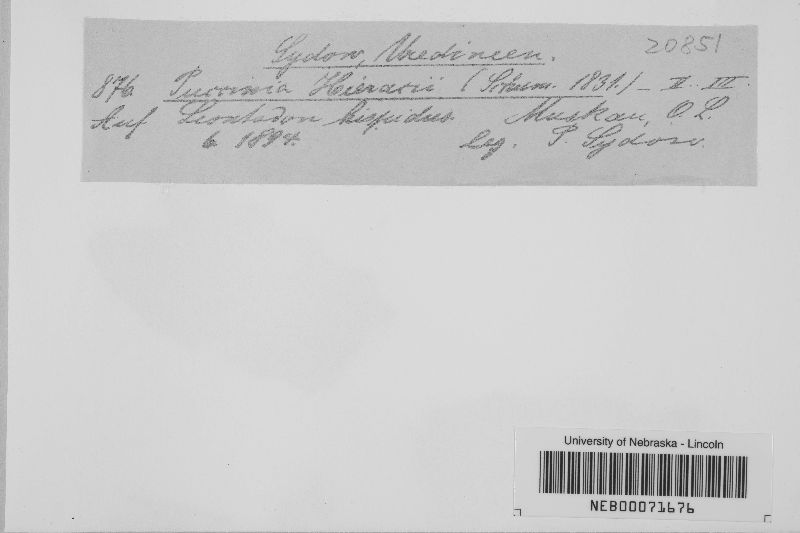 Sydow, Uredineen.
20851
876. Puccinia Hieracii (Schum. 1831.) - II. III.
Auf Leontodon hispidus. Muskau, O. L.
6 1894. leg. P. Sydow.
University of Nebraska - Lincoln
NEB00071676